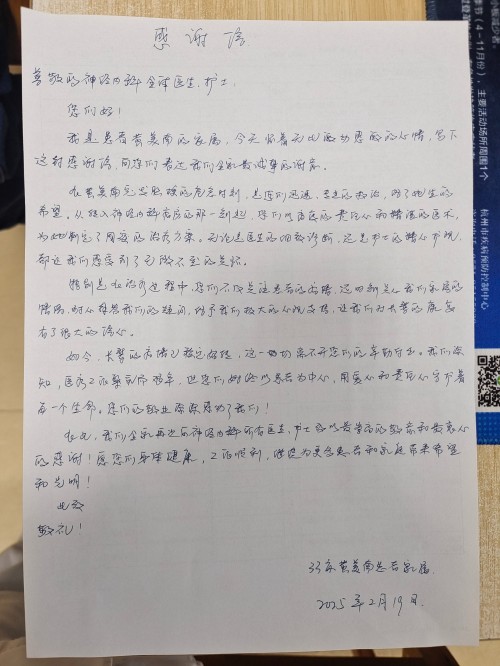 感谢信
尊敬的神经内科全体医生、护士:
您们好!
我是患者黄美南的家属,今天怀着无比的感恩的心情,写下
这封感谢信,向您们表达我们全家最诚挚的谢意。
在黄美南突发脑梗的危急时刻,是您们迅速、专业的救治,给了她生的
希望。从转入神经内科病房的那一刻起,您们以高度的责任心和精湛的医术,
为她制定了周密的治疗方案。无论是医生的细致诊断,还是护士的精心护理,
都让我们感受到了无微不至的关怀。
特别是在治疗过程中,您们不仅关注患者的病情,还时刻关心我们家属的
情绪,耐心解答我们的疑问,给予我们极大的心理支持,让我们对长辈的康复
有了很大的信心。
如今,长辈的病情已稳定好转,这一切离不开您们的辛勤付出。我们深
知,医务工作繁重而艰辛,但您们始终以患者为中心,用爱心和责任心守护着
每一个生命。您们的敬业精神感动了我们!
在此,我们全家再次向神经内科所有医生、护士致以最崇高的敬意和最衷心
的感谢!愿您们身体健康,工作顺利,继续为更多患者和家庭带来希望
和光明!
此致
敬礼!
33床黄美南患者家属
2025年2月19日.
季节(4-11月份),主要活动场所周围1个
杭州市疾病预防控制中心